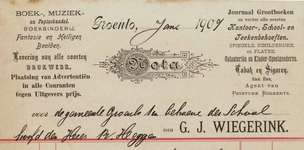 BOEK-, MUZIEK-
en Papierhandel.
BOEKBINDERIJ.
Fantasie en Heiligen
Beelden.
Levering van alle soorten
DRUKWERK.
Plaatsing van Advertentiën
in alle Couranten
tegen Uitgevers prijs.
Groenlo, Janr 1907
Nota
Journaal Grootboeken
en verder alle soorten
Kantoor-, School- en
Teekenbehoeften.
SPIEGELS, SCHILDERIJEN,
en PLATEN.
Galanteriën en Kinder-Speelgoederen.
Tabak en Sigaren.
Enz. Enz.
Agent van
PRINTURE BOGAERTS.
voor de gemeente Groenlo ten behoeve der School
hoofd den Heer
VAN G. J. WIEGERINK.